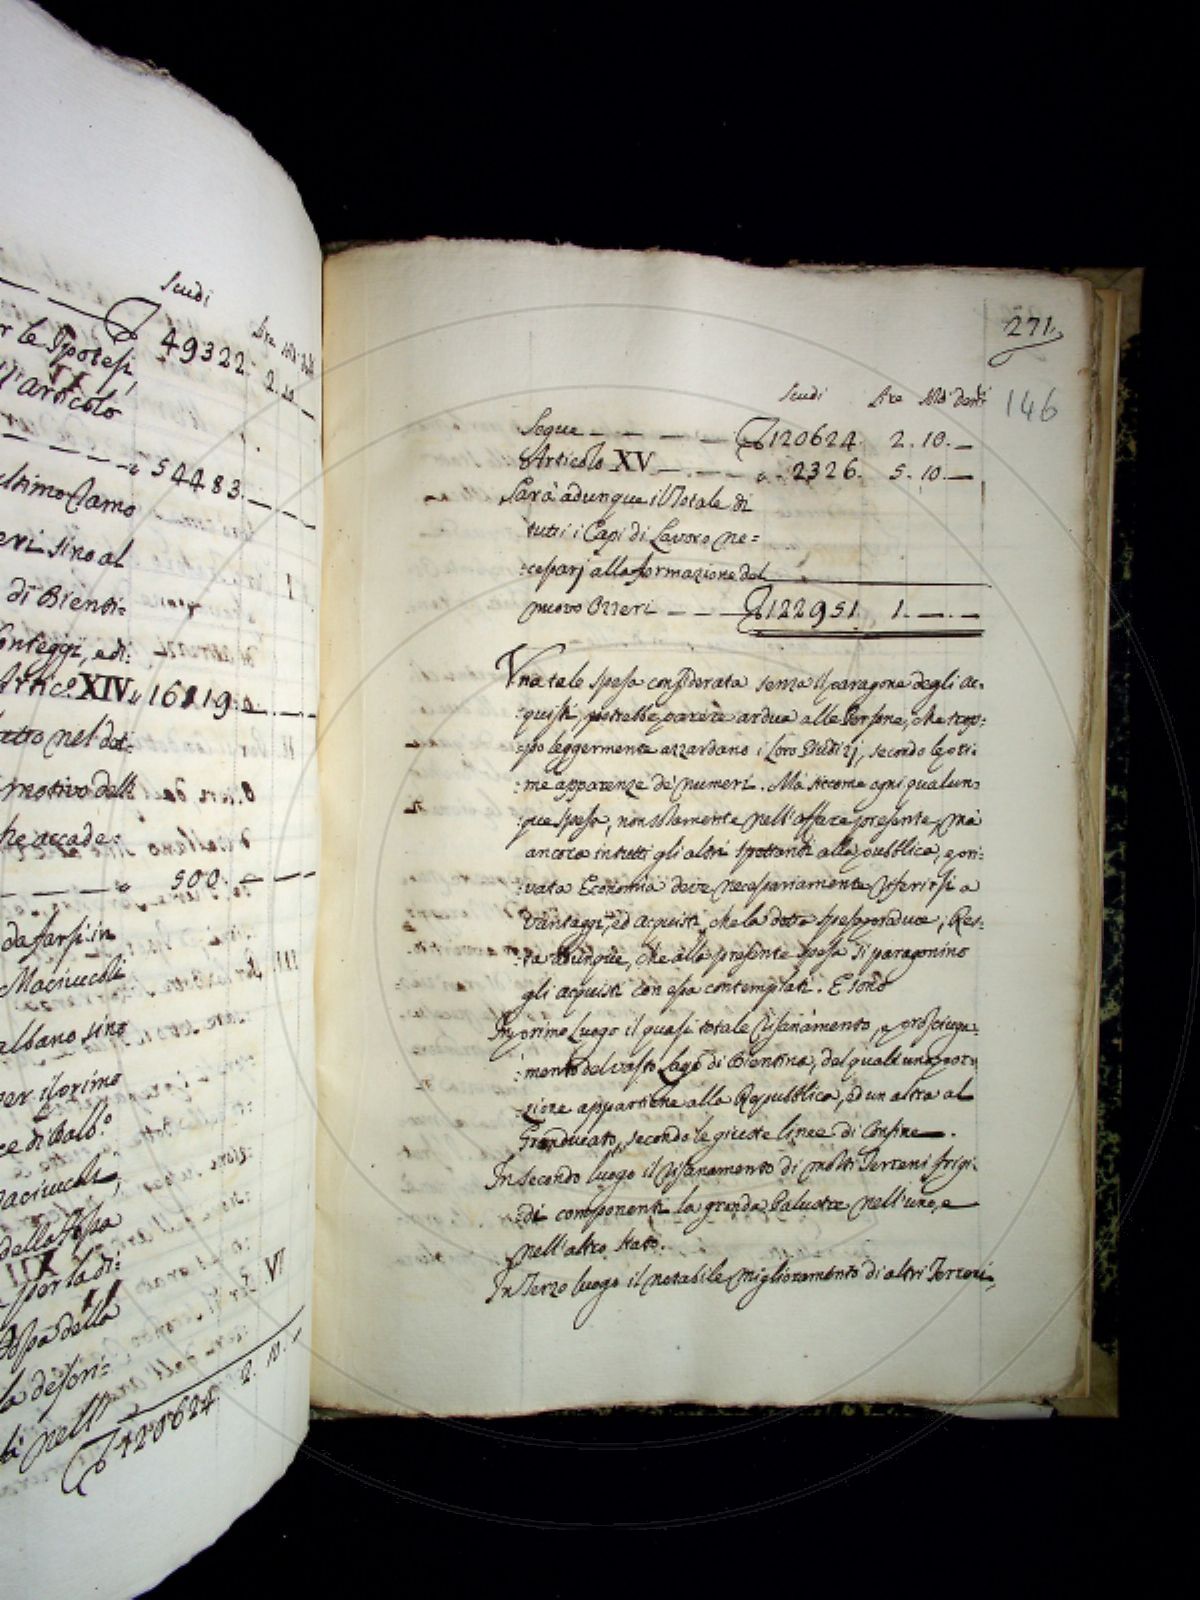 Scudi
Lire sol: d:
49322. 2. 10. —
r le Ipotesi
ll'articolo
54483. —
ltimo Ramo
eri sino al
di Bienti:
onteggi, e di:
Artic.º XIV. 16119: —
atto nel dot:
motivo dell
he accade:
500. —
da farsi in
Maciucoli
albano sino
per il primo
ce di Balb.º
Maciucoli,
della spesa
XII
per la di:
spesa della
la descri:
ti nell'
120624. 2. 10. —
271.
146
Scudi Lire Soldi Denri
Segue — — — — — 120624. 2. 10. —
Articolo XV — — — 2326. 5. 10. —
Sarà adunque il Totale di
tutti i Capi di Lavoro ne=
:cessarj alla formazione del
nuovo Ozzeri — — — 122951. 1. — . —
Una tale spesa considerata senza il paragone degli ac:
:quisti, potrebbe parere ardua alle Persone, che trop:
:po leggermente azzardano i loro Giudizj, secondo le pri:
:me apparenze de' numeri. Mà siccome ogni qualun:
:que spesa, non solamente nell'affare presente, mà
ancora in tutti gli altri spettanti alla pubblica, e pri:
:vata Economia deve necessariamente riferirsi a
Vantaggi, ed acquisti, che la detta spesa produce; Res:
:ta adunque, che alla presente spesa si paragonino
gli acquisti con essa contemplati. E sono
In primo Luogo il quasi totale risanamento, e prosciuga:
:mento del vasto Lago di Bientina, del quale una por:
:zione appartiene alla Repubblica, ed un altra al
Granducato, secondo le giuste linee di Confine.
In secondo luogo il risanamento di molti Terreni frigi:
:di componenti la grande Palustre nell'uno, e
nell'altro Stato.
In Terzo luogo il notabile miglioramento di altri Terreni,